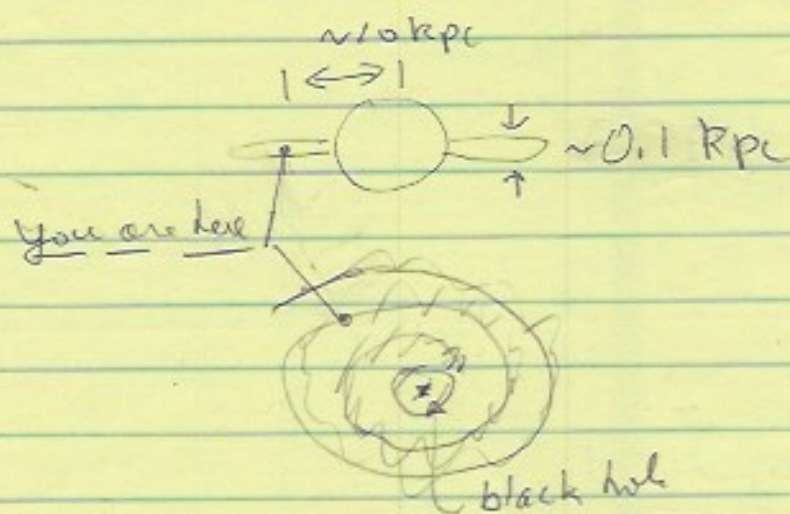 ~10 kpc
~0.1 kpc
You are here
black hole